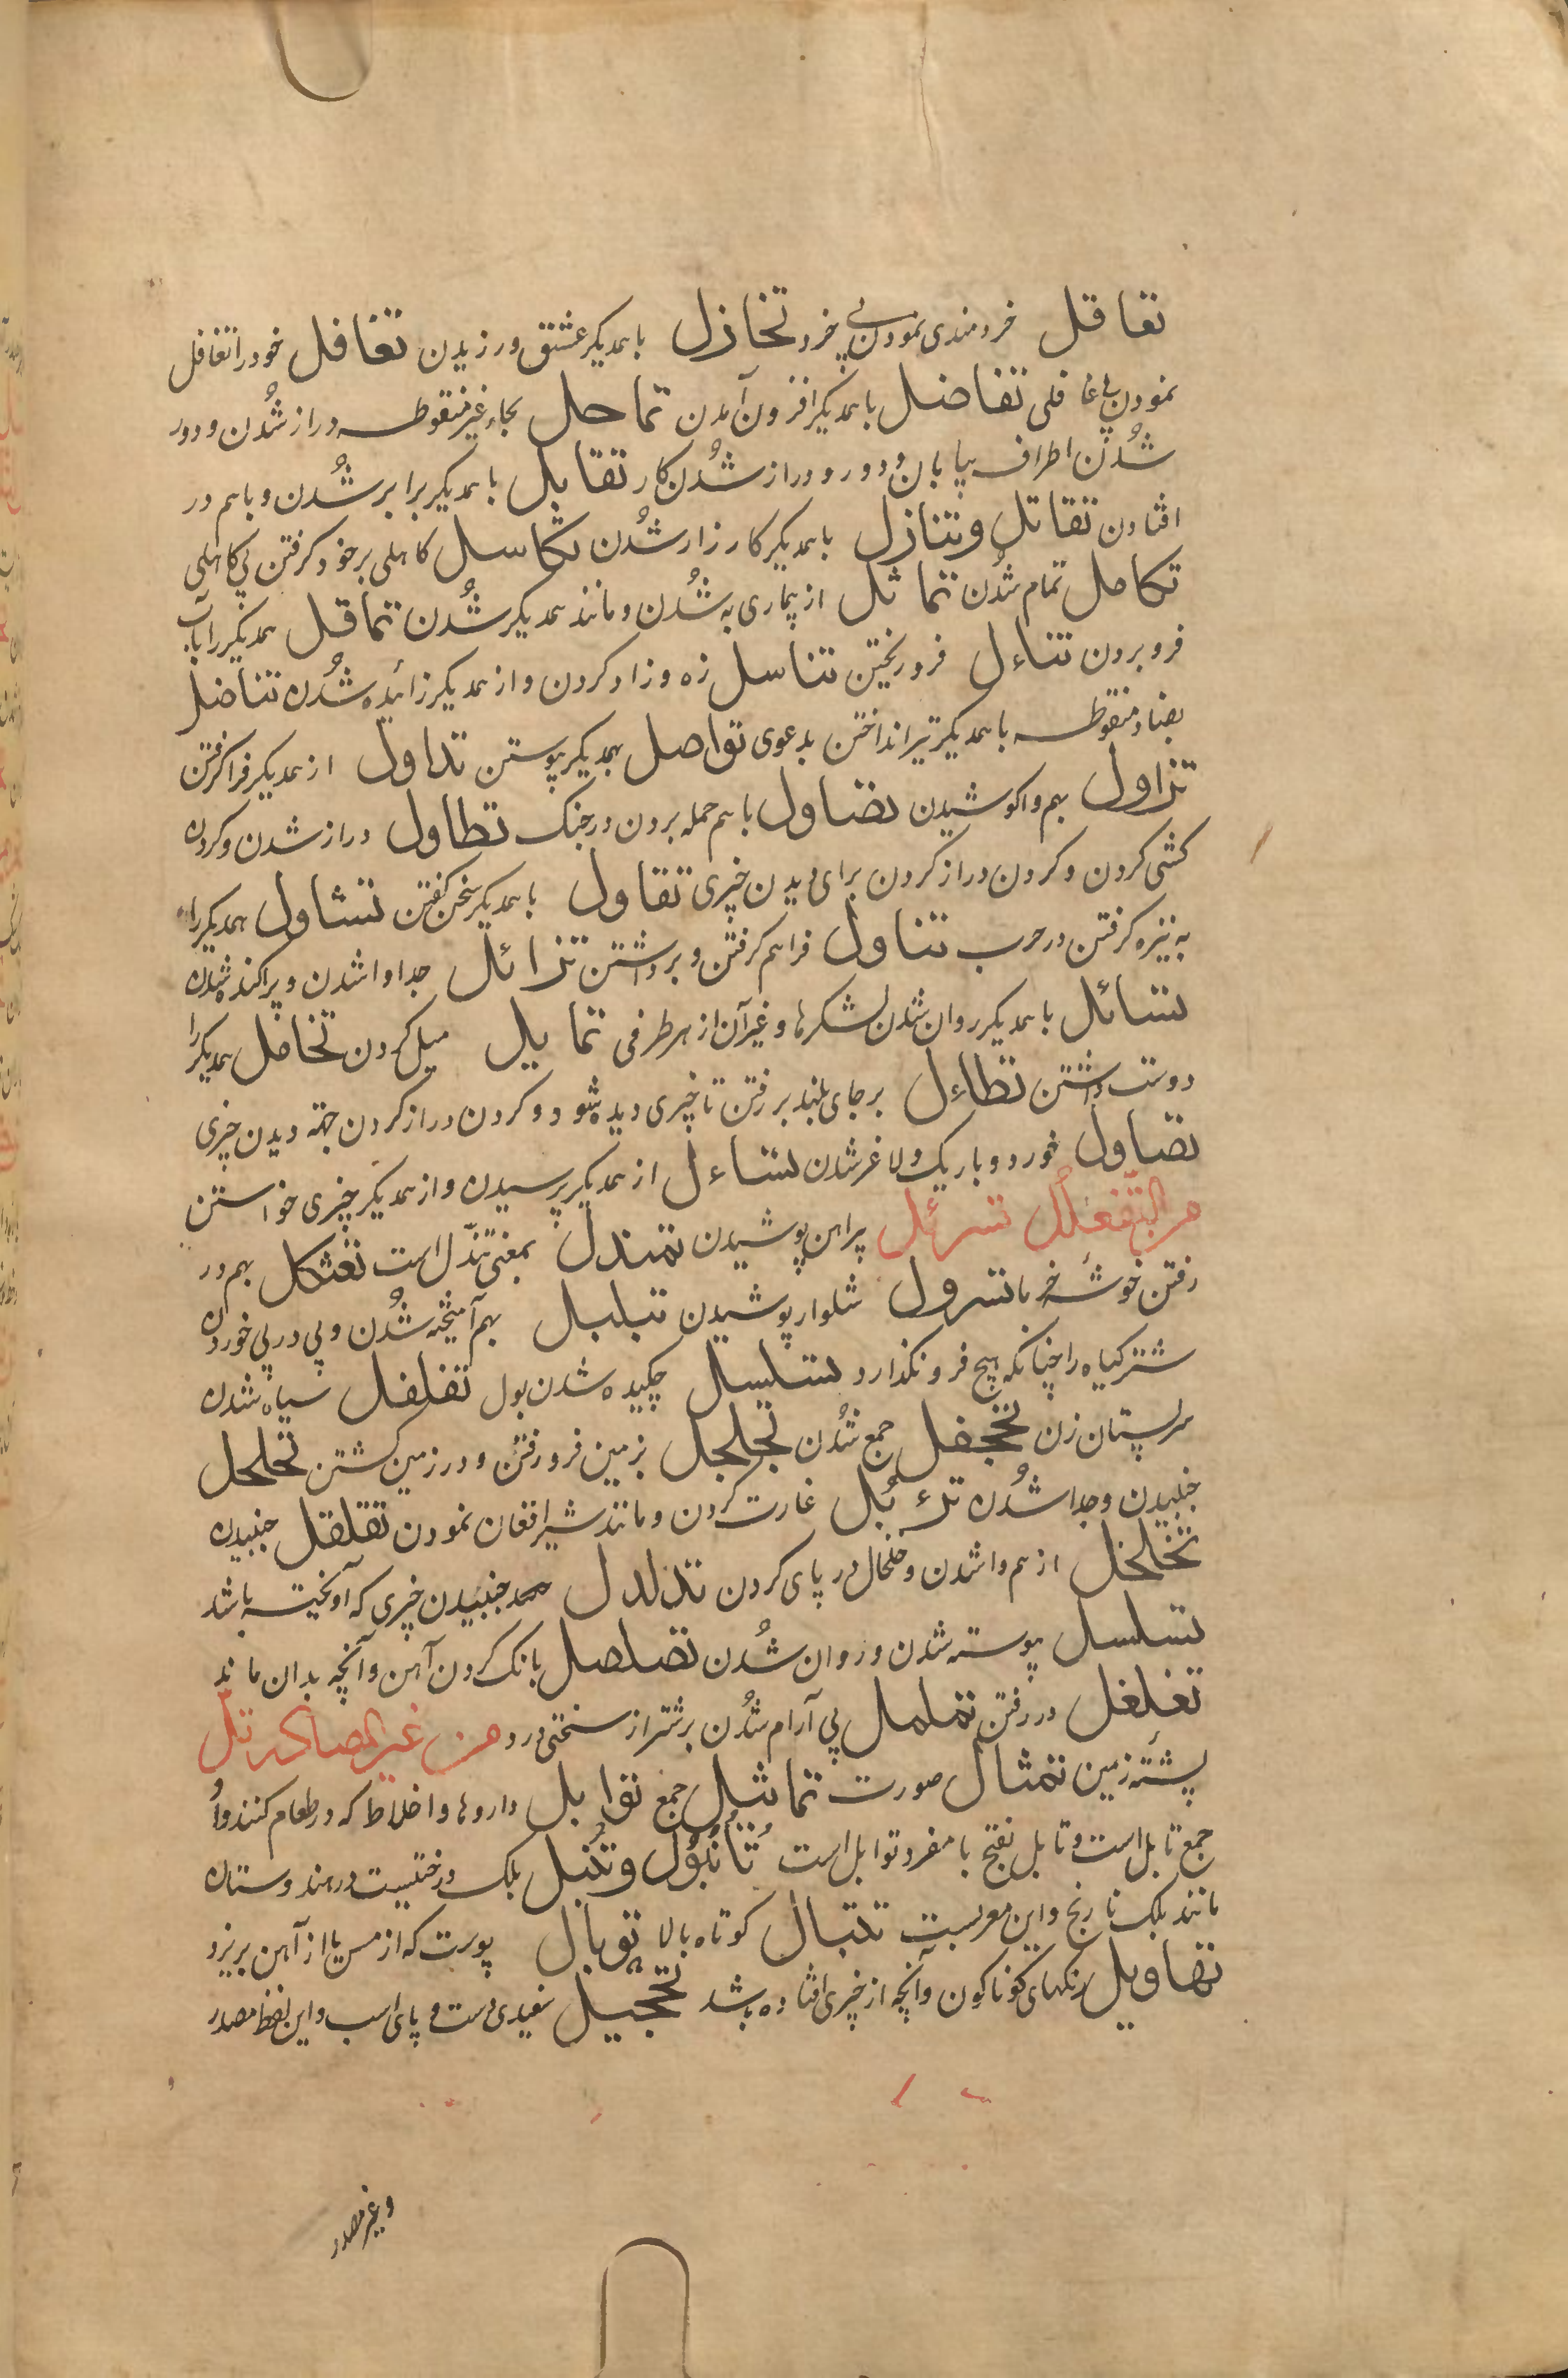 تعاقل خردمندی نمودن بی خرد تخازل با همدیگر عشق ورزیدن تغافل خود را تغافل
نمودن بی غافلی تفاضل با همدیگر افزون آمدن تماحل بحاء غیر منقوطه دراز شُدن و دور
شُدن اطراف بیابان و دور و دراز شُدن کار تقابل با همدیگر برابر شُدن و با هم در
افتادن تقاتل وتنازل با همدیگر کارزار شُدن تکاسل کاهلی بر خود گرفتن بی کاهلی
تکامل تمام شدن تماثل از بیماری به شُدن و مانند همدیگر شُدن تماقل همدیگر را بآب
فرو بردن تناءل فرو ریختن تناسل زه و زاد کردن و از همدیگر زائیده شُدن تناضل
بضاد منقوطه با همدیگر تیر انداختن بدعوی تواصل بهمدیگر پیوستن تداول از همدیگر فرا گرفتن
تزاول بهم واکوشیدن تصاول با هم حمله بردن در جنک تطاول دراز شدن و گردن
کشی کردن و گردن دراز کردن برای دیدن چیزی تقاول با همدیگر سخن گفتن تشاول همدیگر را
به نیزه گرفتن در حرب تناول فراهم گرفتن و برداشتن تزائل جدا وا شدن و پراکنده شدن
تسائل با همدیگر روان شدن لشکرها و غیر آن از هر طرفی تمایل میل کردن تخافل همدیگر را
دوست داشتن تطاءل بر جای بلند بر رفتن تا چیزی دیده شود و گردن دراز کردن جهة دیدن چیزی
تضاول خورد و باریک و لاغر شدن تساءل از همدیگر پرسیدن و از همدیگر چیزی خواستن
من التّفعلُل تسرئل پراهن پوشیدن تمندل بمعنی تندّل است تعثکل بهم در
رفتن خوشه خرما تسرول شلوار پوشیدن تبلبل بهم آمیخته شُدن و پی در پی خوردن
شتر گیاه را چنانکه هیچ فرو نگذارد تسلسل چکیده شدن بول تفلفل سیاه شدن
سر پستان زن تجحفل جمع شُدن تجلجل بزمین فرو رفتن و در زمین گشتن تحلحل
جنبیدن و جدا شُدن ترءبُل غارت کردن و مانند شیر افغان نمودن تقلقل جنبیدن
تخلخل از هم وا شدن و خلخال در پای کردن تدلدل جنبیدن چیزی که آویخته باشد
تسلسل پیوسته شدن و روان شُدن تصلصل بانک کردن آهن و آنچه بدان ماند
تغلغل در رفتن تململ بی آرام شُدن بر شتر از سختی درد من غیر المصادر تلّ
پشته زمین تمثال صورت تماثیل جمع توابل داروها و اخلاط که در طعام کنند و او
جمع تابل است و تابل بفتح با مفرد توابل است تُانُبُوْل و تنبل بلک درختیست در هندوستان
مانند بلک نارنج و این معربست تنبال کوتاه بالا توبال پوست که از مس یا از آهن بریزد
تهاویل رنگهای گوناگون و آنچه از چیزی افتاده باشد تحجیل سفیدی دست و پای اسب و این لفظ مصدر
و غیر مصدر